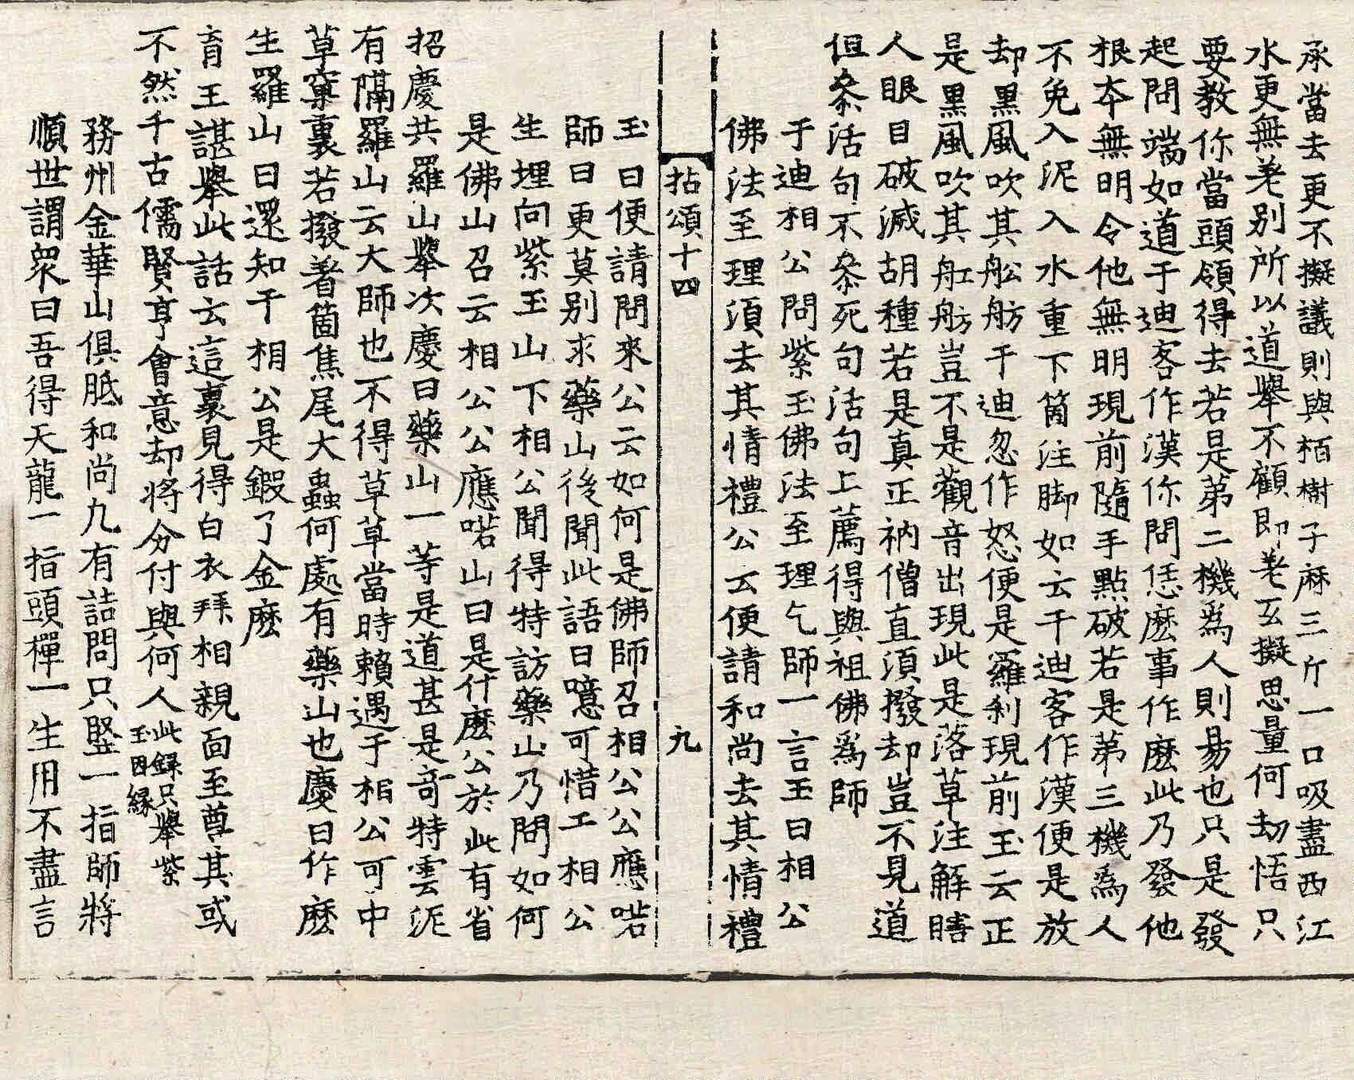 承當去更不擬議則與栢樹子麻三斤一口吸盡西江
水更無差別所以道舉不顧即差玄擬思量何劫悟只
要教你當頭領得去若是第二機爲人則易也只是發
起問端如道于迪客作漢你問恁麽事作麽此乃發他
根夲無明令他無明現前隨手點破若是第三機爲人
不免入泥入水重下箇注脚如云于迪客作漢便是放
却黑風吹其舩舫于迪忽作怒便是羅刹現前玉云正
是黑風吹其舡舫豈不是觀音出現此是落草注解瞎
人眼目破滅胡種若是真正衲僧直須撥却豈不見道
但叅活句不叅死句活句上薦得與祖佛爲師
于迪相公問紫玉佛法至理乞師一言玉曰相公
佛法至理須去其情禮公云便請和尚去其情禮
拈頌十四 九
玉曰便請問來公云如何是佛師召相公公應喏
師曰更莫別求藥山後聞此語曰噫可惜于相公
生埋向紫玉山下相公聞得特訪藥山乃問如何
是佛山召云相公公應喏山曰是什麽公於此有省
招慶共羅山舉次慶曰藥山一等是道甚是奇特雲泥
有隔羅山云大師也不得草草當時賴遇于相公可中
草窠裏若撥著箇焦尾大蟲何處有藥山也慶曰作麽
生羅山曰還知于相公是鍜了金麽
育王諶舉此話云這裏見得白衣拜相親面至尊其或
不然千古儒賢亨會意却將分付與何人此錄只擧紫玉因緣
務州金華山俱胝和尚凡有詰問只竪一指師將
順世謂衆曰吾得天龍一指頭禪一生用不盡言